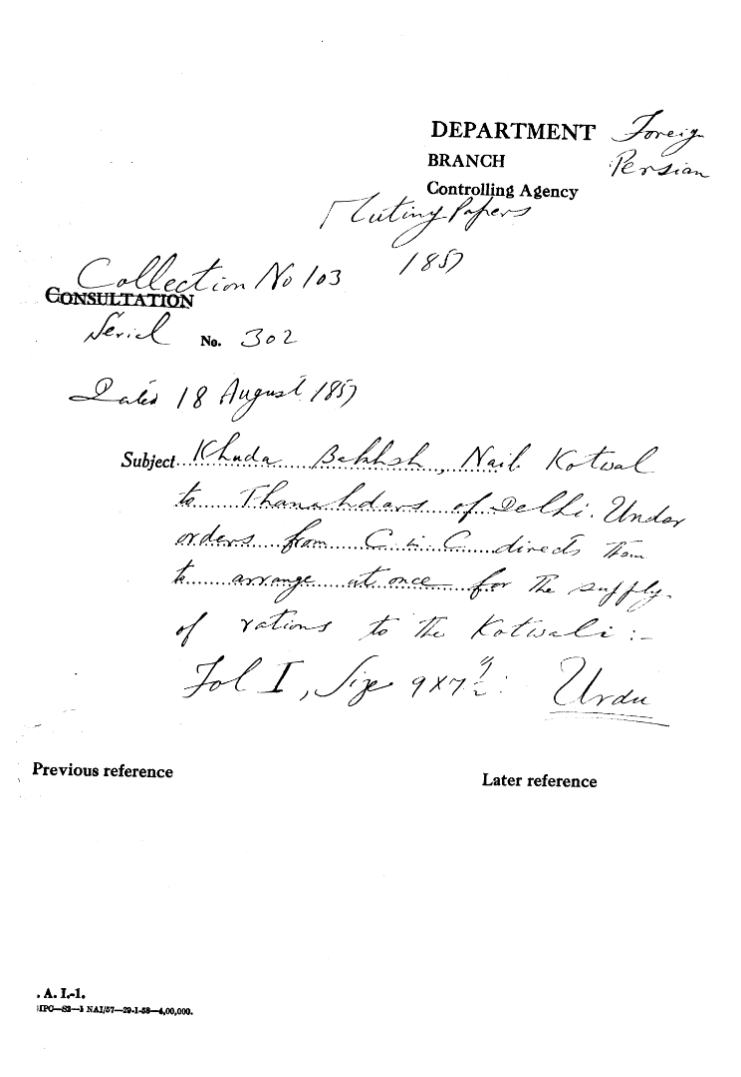 DEPARTMENT Foreign
BRANCH Persian
Controlling Agency
Mutiny Papers
1857
Collection No 103
CONSULTATION
Serial No. 302
Dated 18 August 1857
Subject Khuda Bakhsh, Naib Kotwal
to Thanahdars of Delhi. Under
orders from C in C directs them
to arrange at once for the supply
of rations to the Kotwali :-
Fol I, Size 9x7½": Urdu
Previous reference
Later reference
. A. I.-1.
IPC—S2—1 NAI/57—29-1-58—4,00,000.